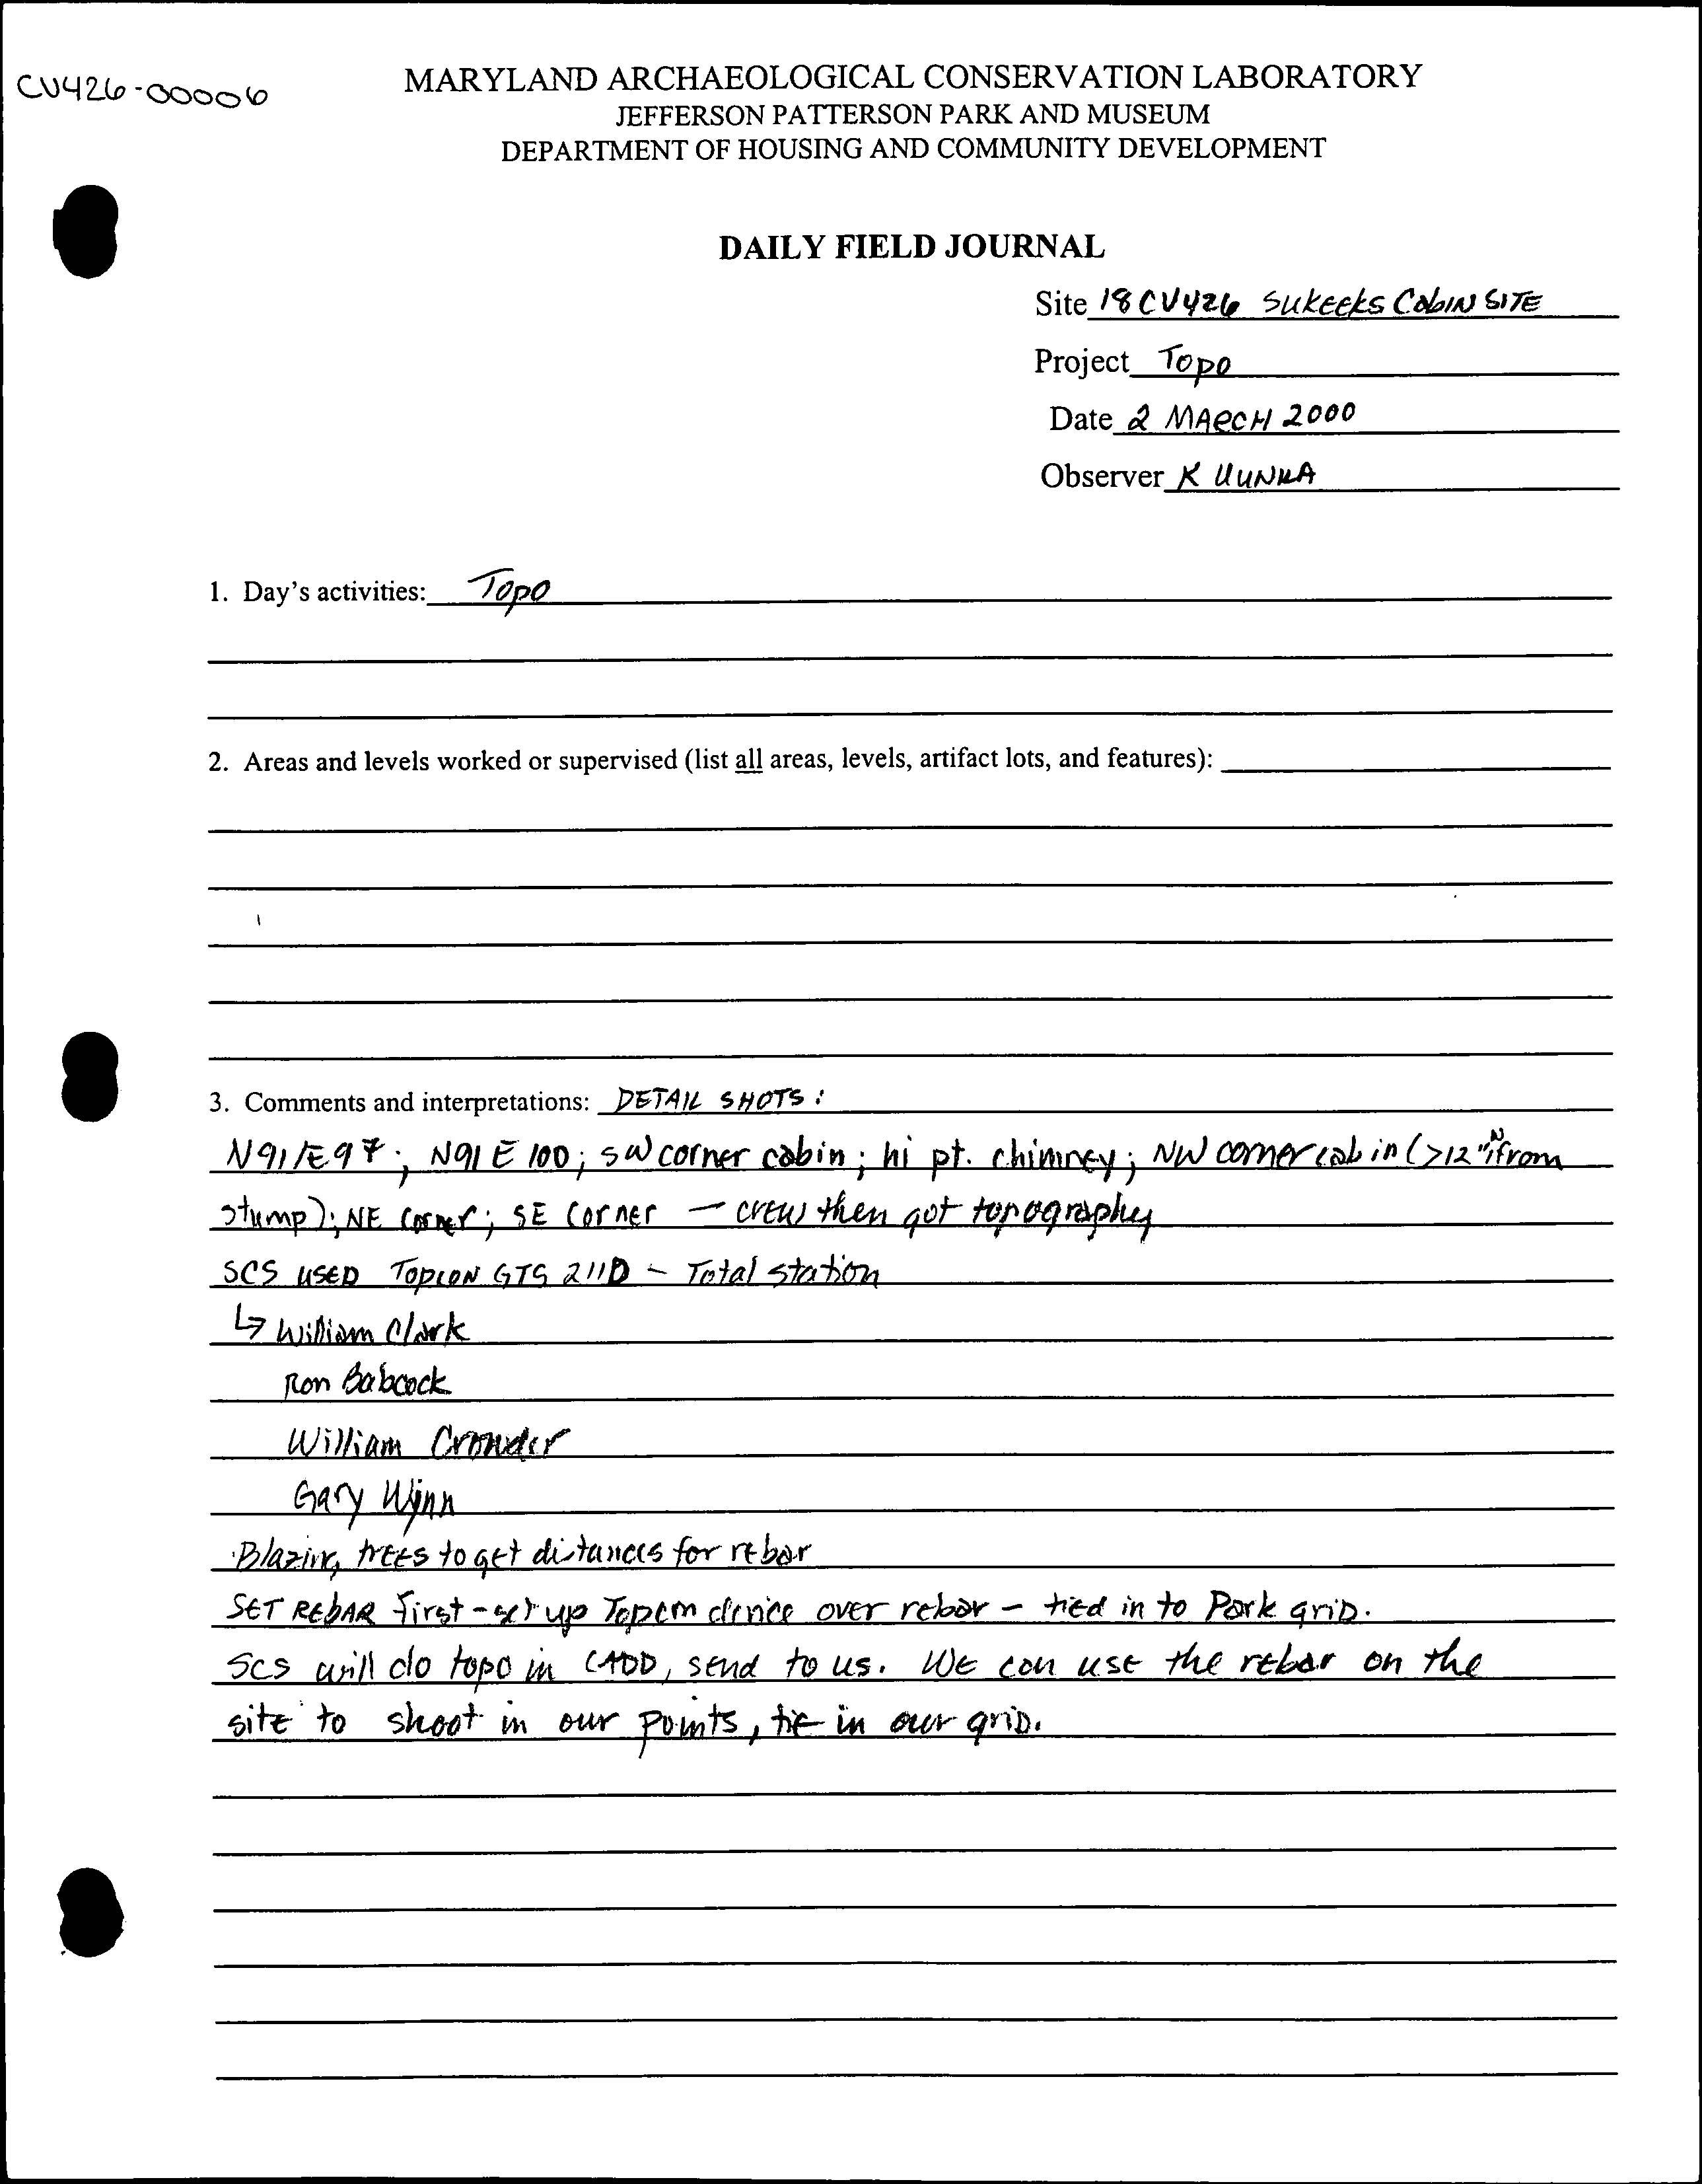 CV426-00006
MARYLAND ARCHAEOLOGICAL CONSERVATION LABORATORY
JEFFERSON PATTERSON PARK AND MUSEUM
DEPARTMENT OF HOUSING AND COMMUNITY DEVELOPMENT
DAILY FIELD JOURNAL
Site 18CV426 Sukeeks Cabin SITE
Project Topo
Date 2 MARCH 2000
Observer K
1. Day's activities: Topo
2. Areas and levels worked or supervised (list all areas, levels, artifact lots, and features):
3. Comments and interpretations: DETAIL SHOTS:
N91/E97; N91 E 100; SW corner cabin; hi pt. chimney; NW corner cabin (>12" N from
stump); NE corner; SE corner — crew then got topography
SCS USED TOPCON GTS 211D - Total station
↳ William Clark
Ron Babcock
William Crowder
Gary Wynn
Blazing trees to get distances for rebar
SET REBAR first - set up Topcon device over rebar - tied in to Park grid.
SCS will do topo in CADD, send to us. We can use the rebar on the
site to shoot in our points, tie in our grid.